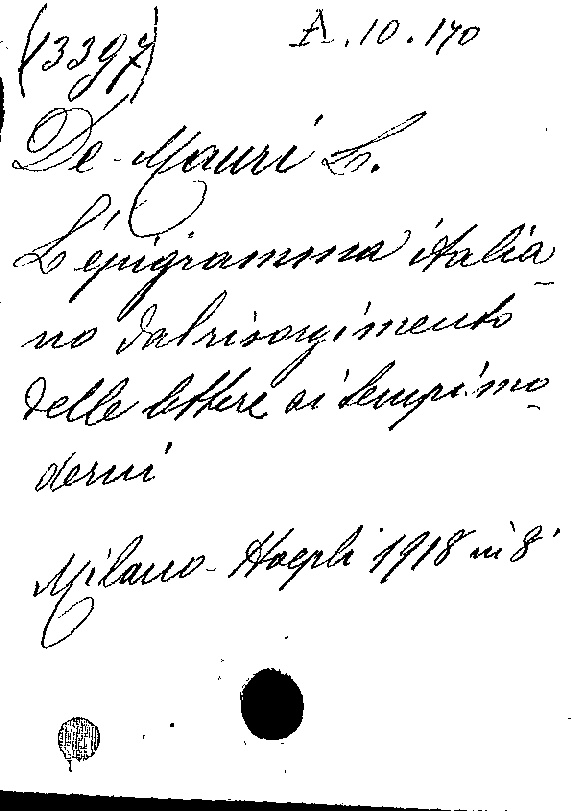 (13397) A.10.170
De-Mauri L.
L'épigramma italia-
no dal risorgimento
delle lettere ai tempi mo-
derni
Milano-Hoepli 1918 in 8°